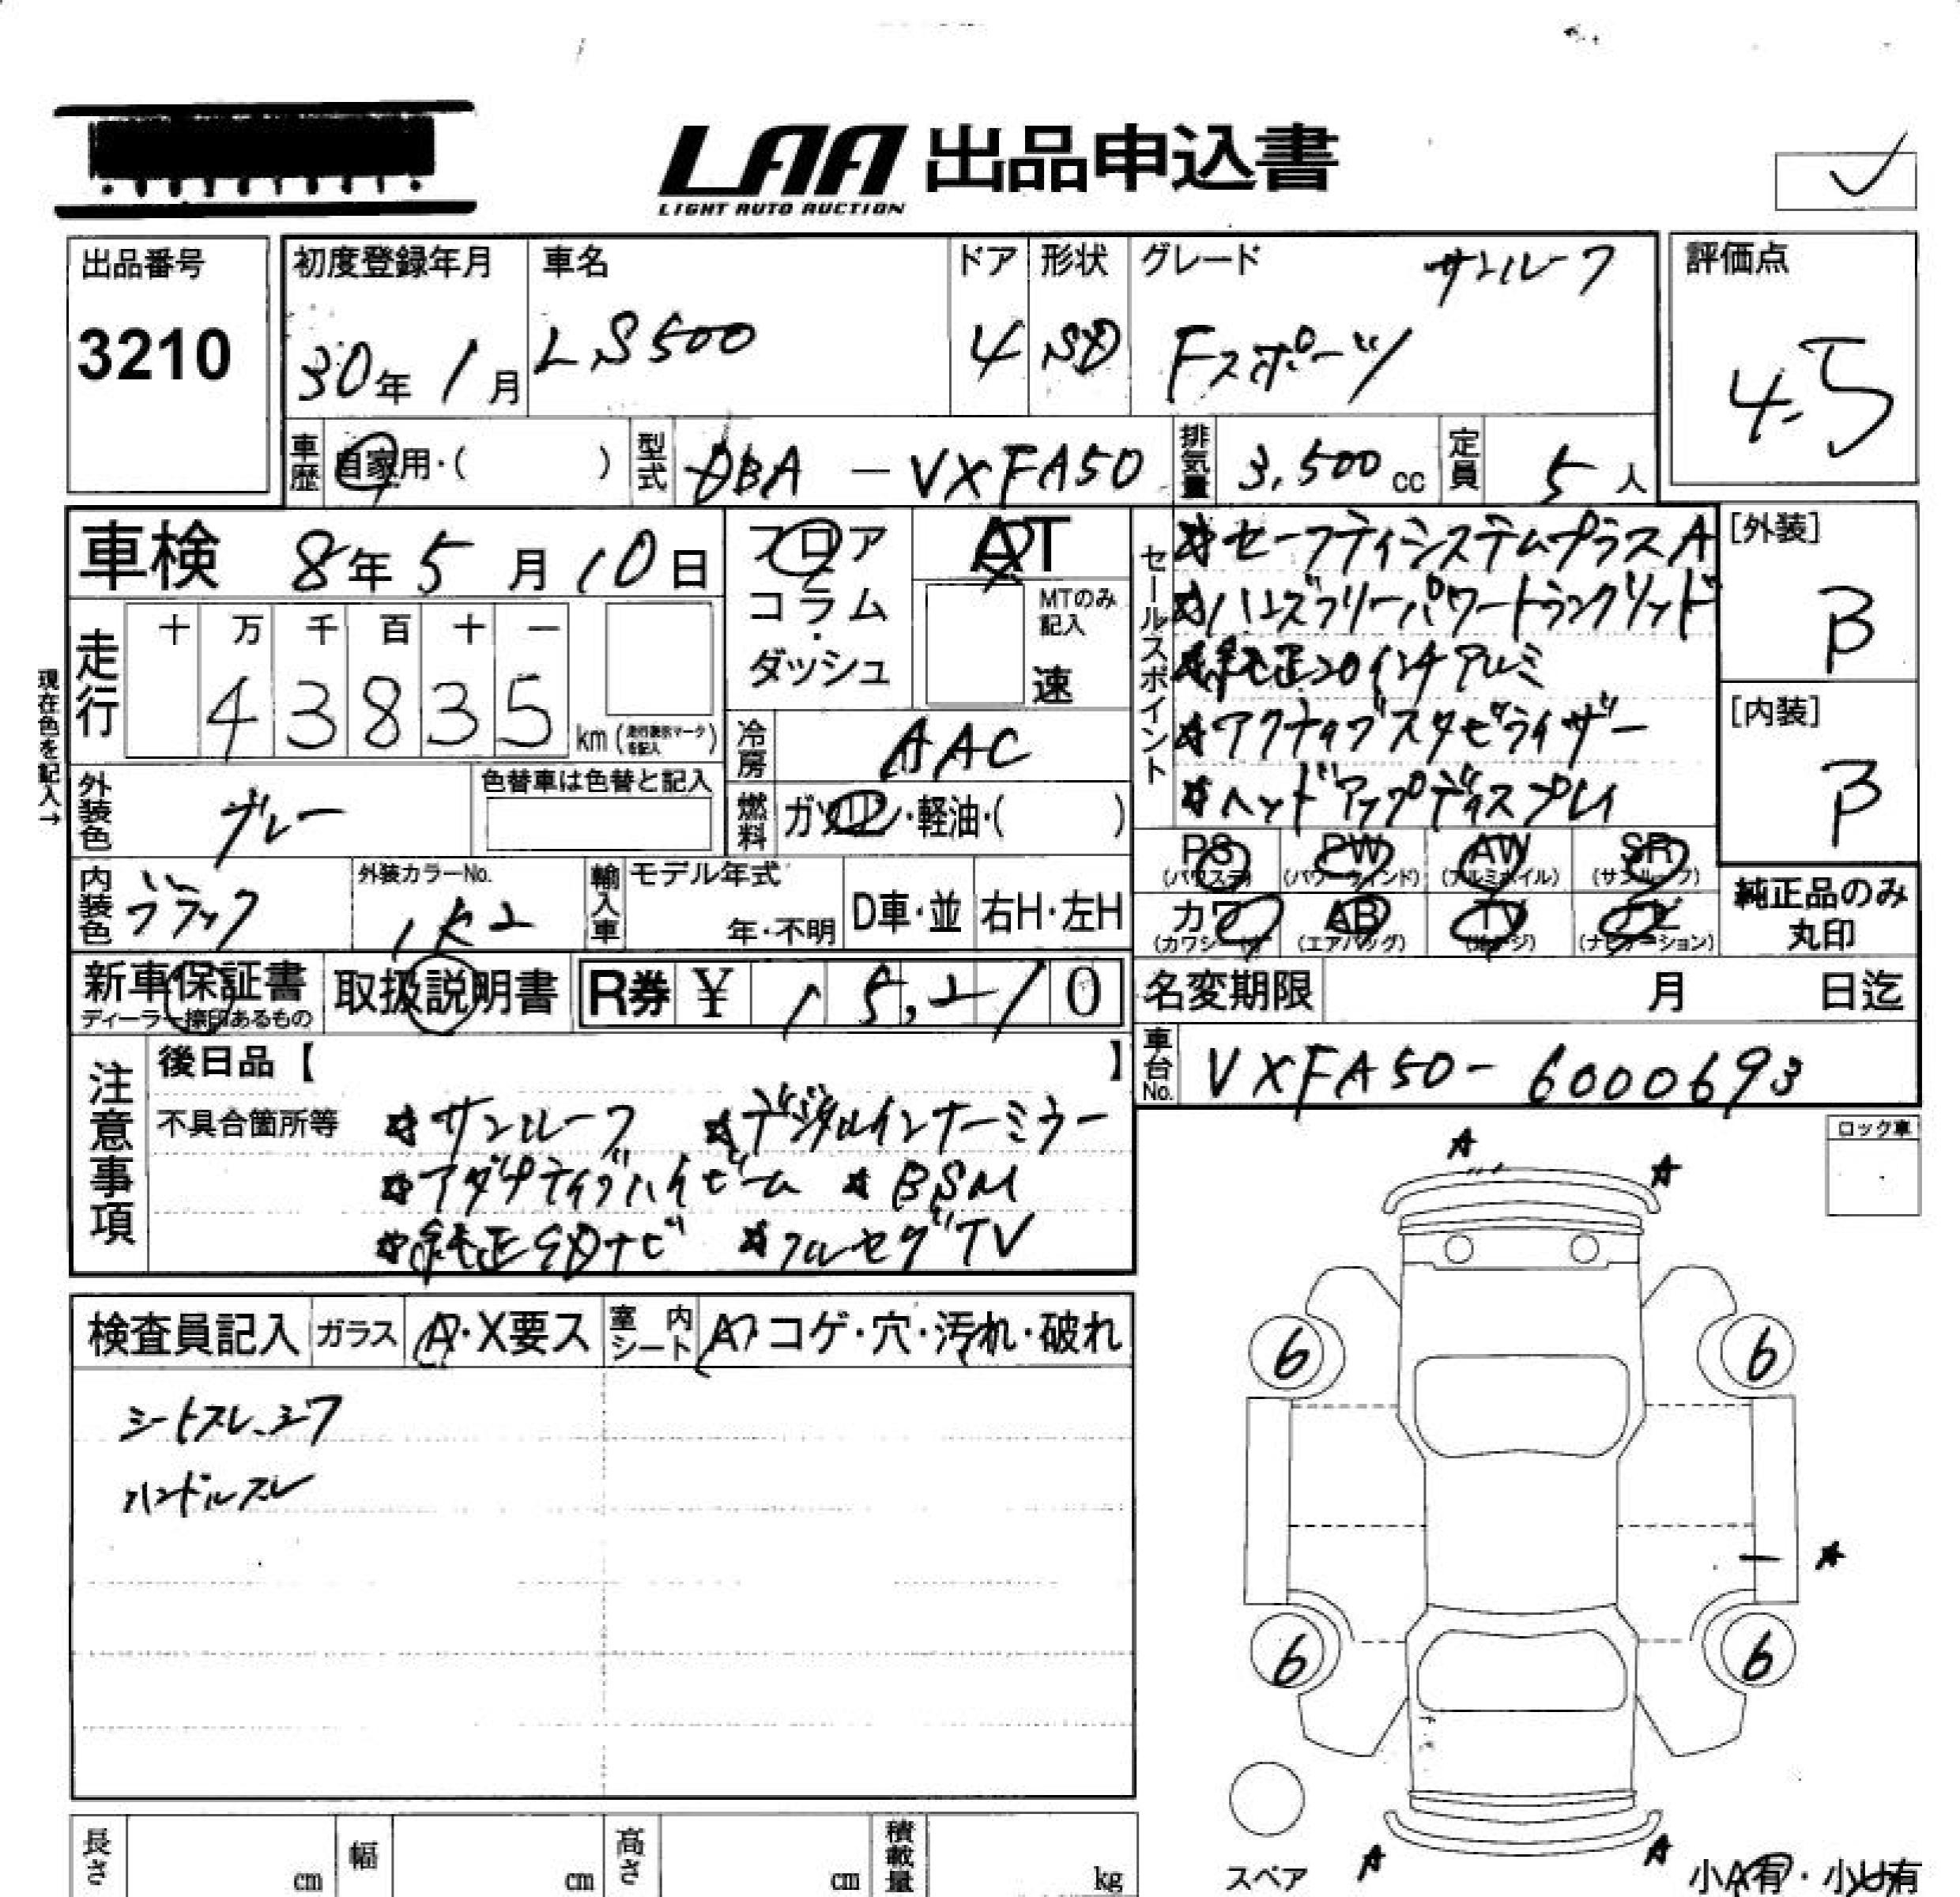 LAA 出品申込書
LIGHT AUTO AUCTION
出品番号
3210
初度登録年月
30年 1月
車名
LS500
ドア
4
形状
SD
グレード
サンルーフ
Fスポーツ
評価点
4.5
車歴
自家用・( )
型式
DBA - VXFA50
排気量
3,500 cc
定員
5人
車検 8年5月10日
フロア
コラム
・
ダッシュ
AT
MTのみ
記入
速
セールスポイント
☆セーフティシステムプラスA
☆ハンズフリーパワートランクリッド
☆純正20インチアルミ
☆アクティブスタビライザー
☆ヘッドアップディスプレイ
[外装]
B
[内装]
B
現在色を記入→
走行
十 万 千 百 十 一
4 3 8 3 5 km (走行表示マークを記入)
冷房
AAC
外装色
グレー
色替車は色替と記入
燃料
ガソリン・軽油・( )
内装色
ブラック
外装カラーNo.
1K2
輸入車
モデル年式
年・不明
D車・並
右H・左H
PS
(パワステ)
PW
(パワーウィンド)
AW
(アルミホイル)
SR
(サンルーフ)
カワ
(カワシート)
AB
(エアバッグ)
TV
ナビ
(ナビゲーション)
純正品のみ
丸印
新車保証書
ディーラー捺印あるもの
取扱説明書
R券 ¥ 15,210
名変期限 月 日迄
車台No.
VXFA50-6000693
注意事項
後日品【 】
不具合箇所等
☆サンルーフ ☆デジタルインナーミラー
☆アダプティブハイビーム ☆BSM
☆純正SDナビ ☆フルセグTV
ロック車
A
A
検査員記入
ガラス
A・X要ス
室内シート
A・コゲ・穴・汚れ・破れ
シートスレ、シワ
ハンドルスレ
6 6
A
6 6
スペア
A A
小A有・小U有
長さ cm
幅 cm
高さ cm
積載量 kg